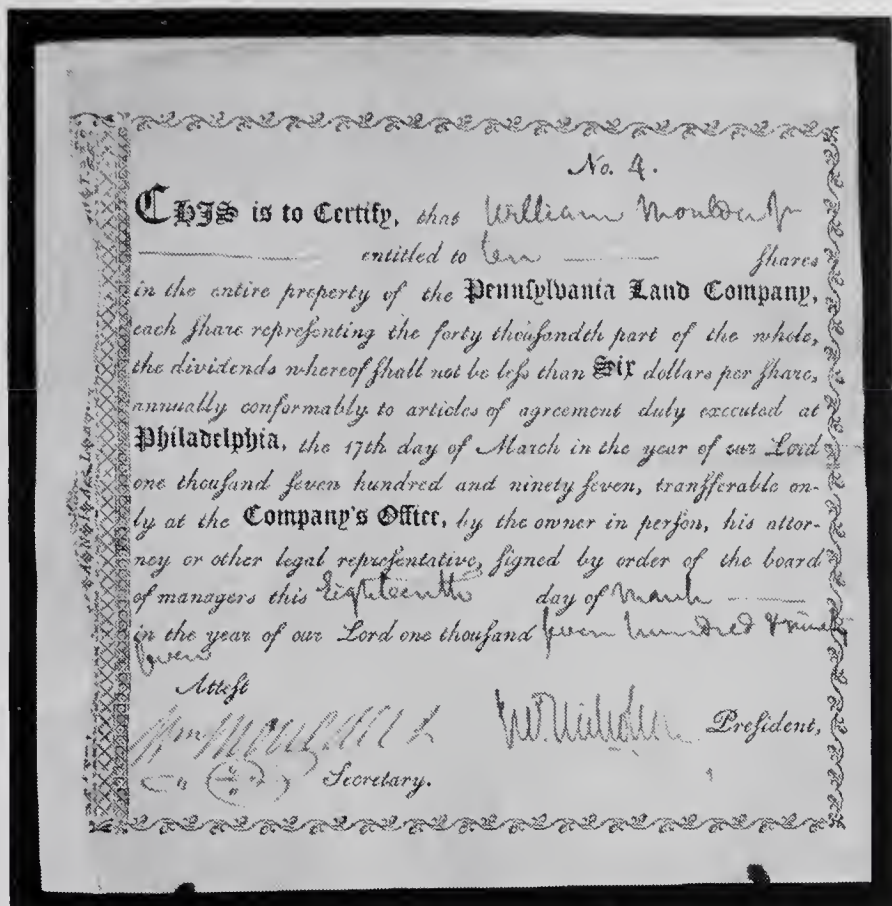 No. 4.
THIS is to Certify, that William Moulder Jr
entitled to ten shares
in the entire property of the Pennsylvania Land Company,
each share representing the forty thousandth part of the whole,
the dividends whereof shall not be less than Six dollars per share,
annually conformably to articles of agreement duly executed at
Philadelphia, the 17th day of March in the year of our Lord
one thousand seven hundred and ninety seven, transferable on-
ly at the Company's Office, by the owner in person, his attor-
ney or other legal representative, signed by order of the board
of managers this Eighteenth day of March
in the year of our Lord one thousand seven hundred & ninety
seven
Attest
Wm Moulder Jr
Wm. Nicholson President,
Secretary.